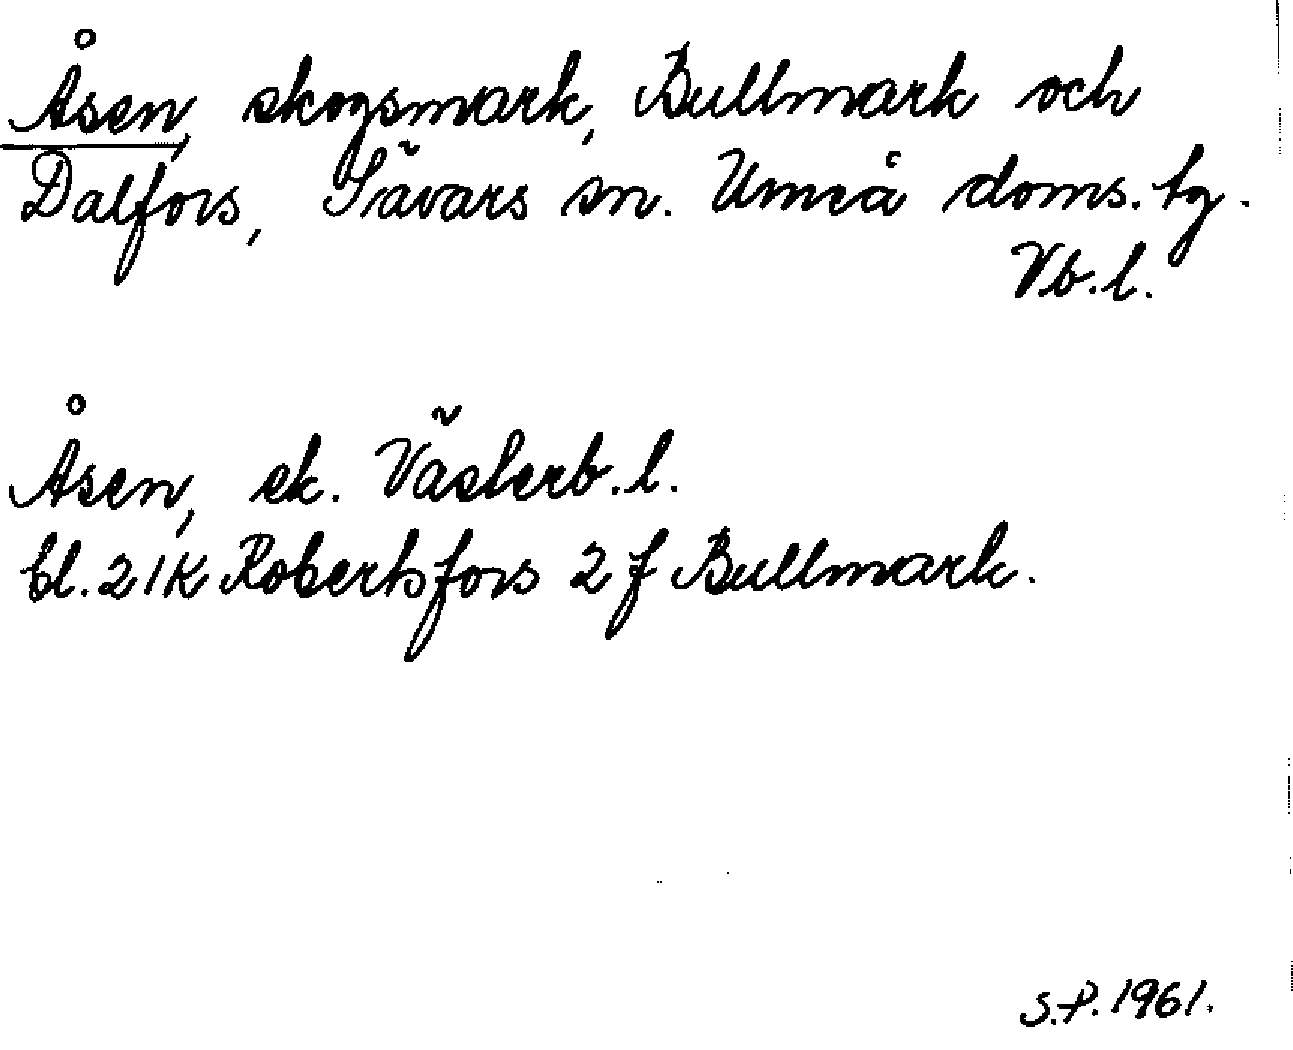 Åsen, skogsmark, Bullmark och
Dalfors, Sävars sn. Umeå doms. tg.
Vb.l.
Åsen, sk. Västerb.l.
bl. 21K Robertsfors 2 f Bullmark.
S.P. 1961.